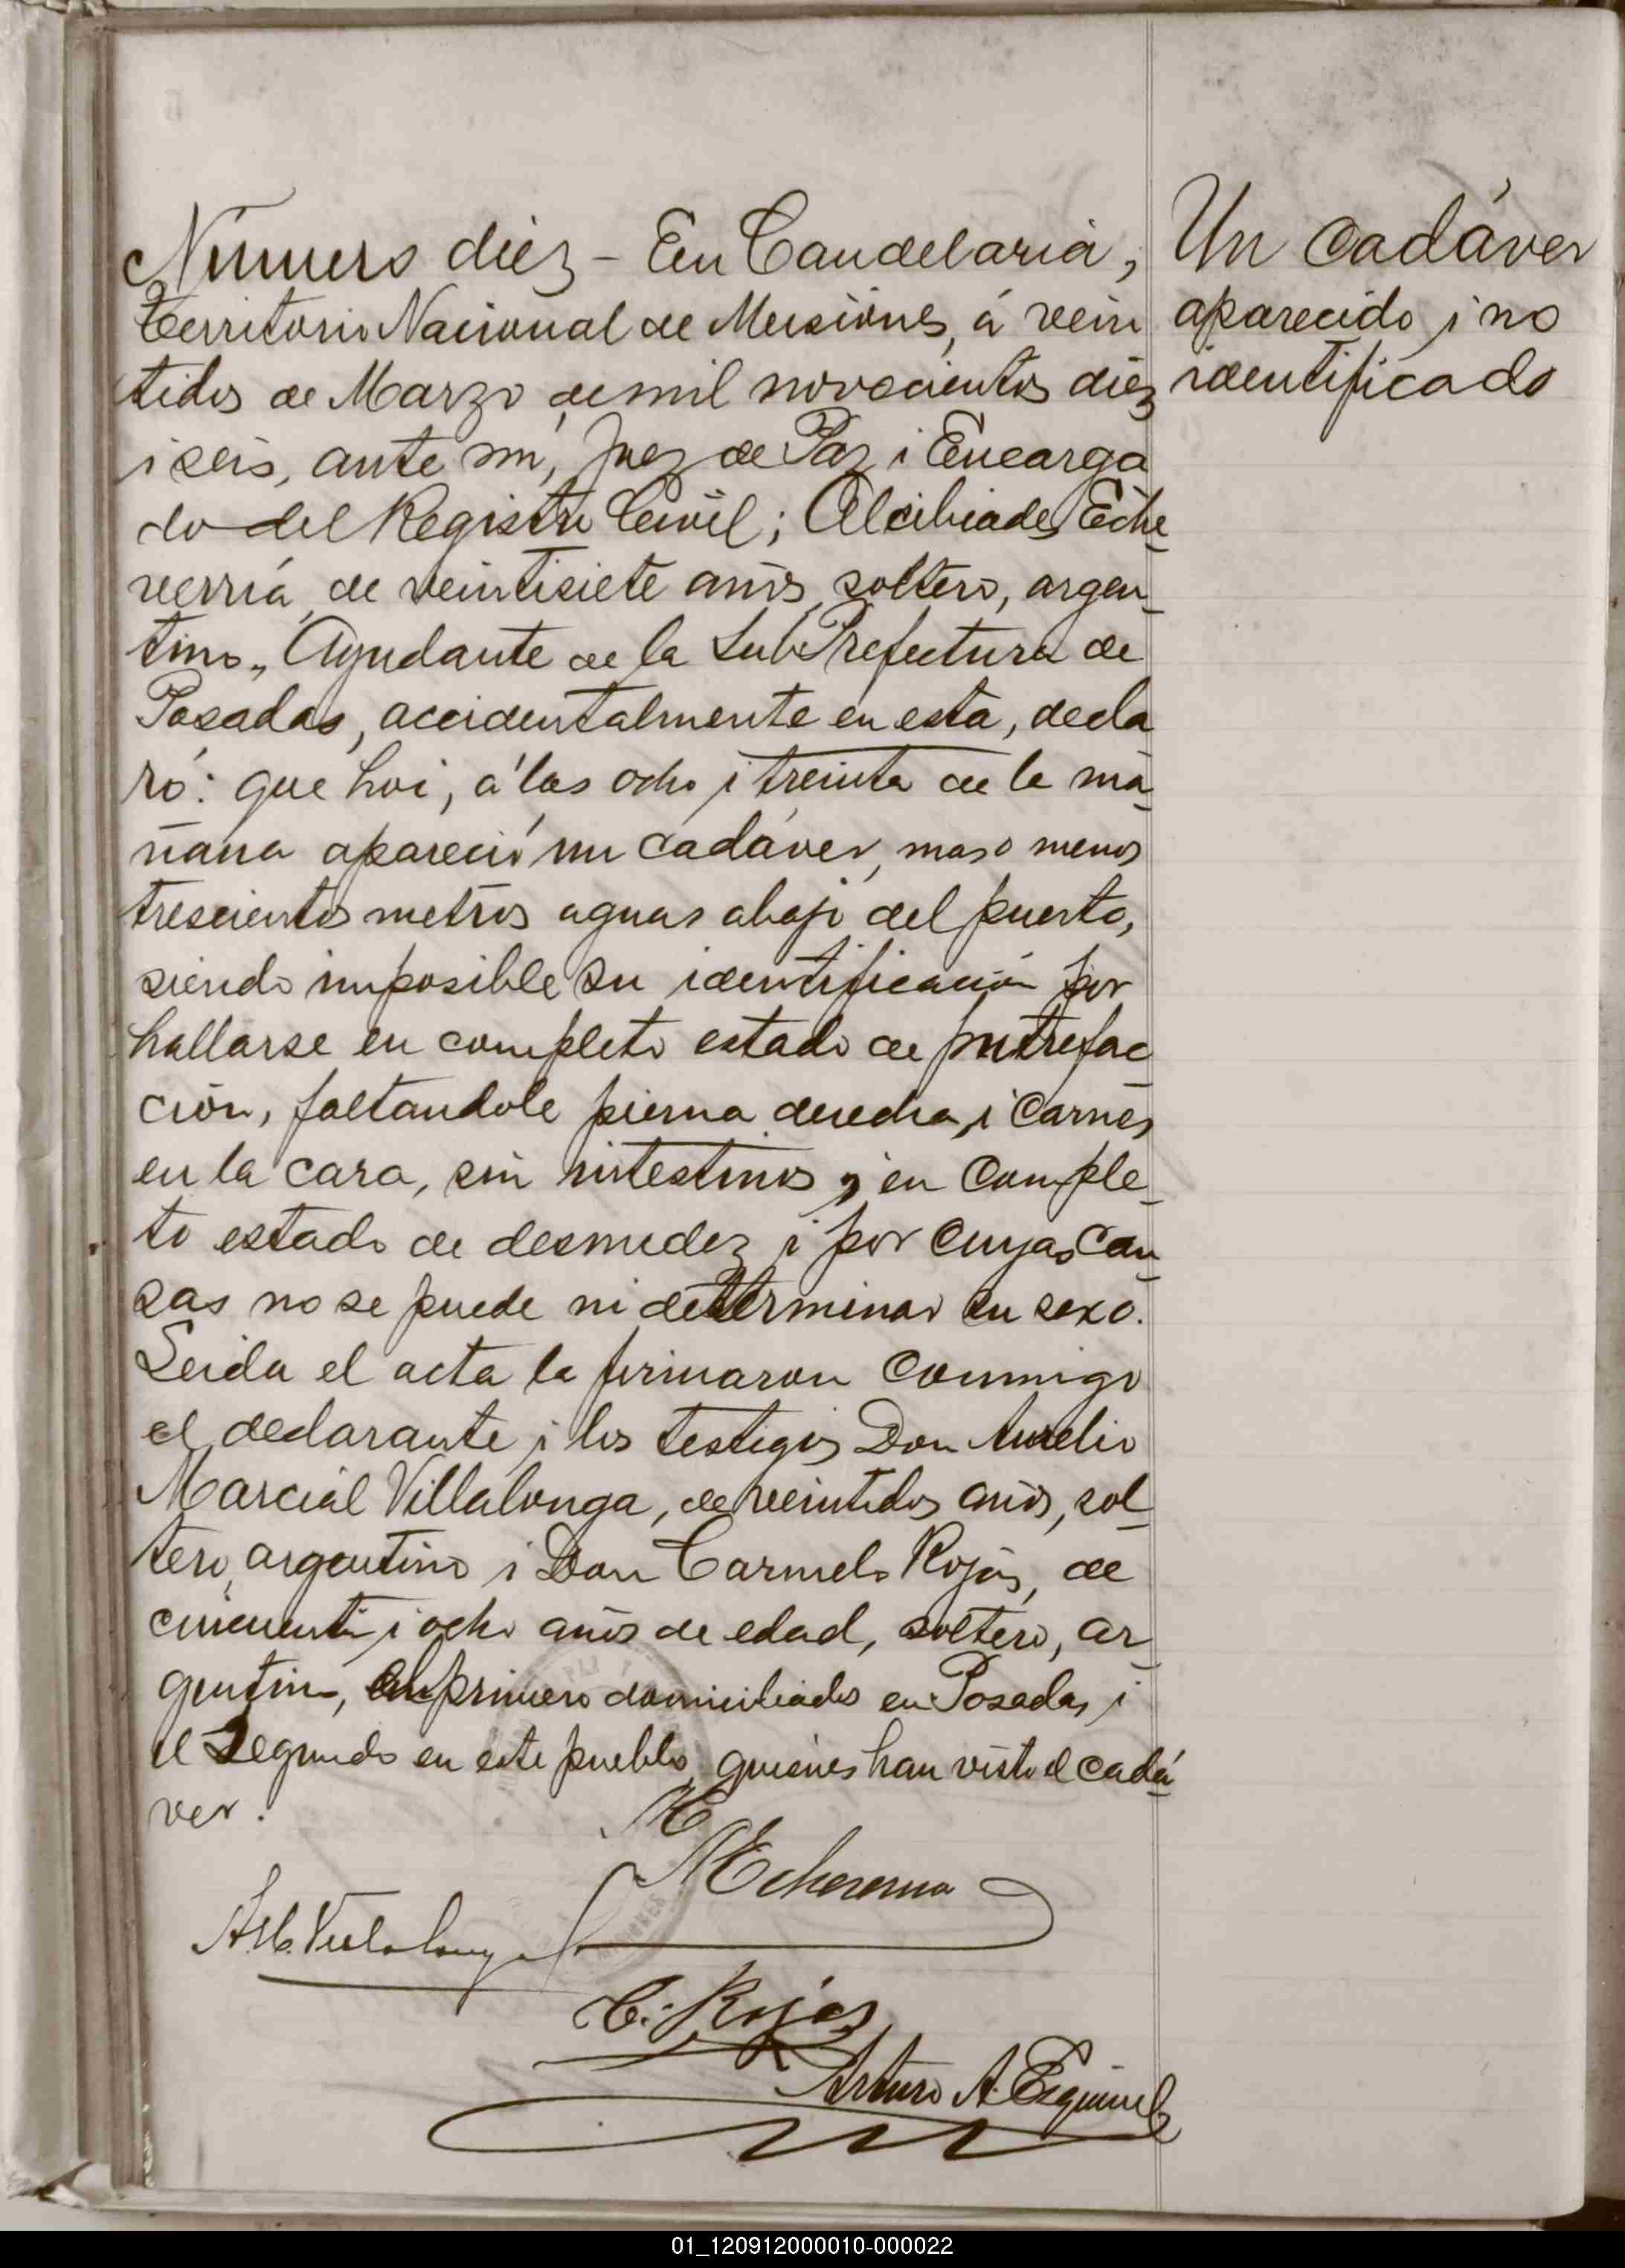 Número diez - En Candelaria,
Territorio Nacional de Misiones, á vein
tidos de Marzo de mil novecientos diez
i seis, ante mí, Juez de Paz i Encarga
do del Registro Civil; Alcibiades Eche-
verría, de veintisiete años, soltero, argen-
tino, Ayudante de la Sub Prefectura de
Posadas, accidentalmente en esta, decla
ró: que hoi, á las ocho i treinta de la ma-
ñana apareció un cadáver, mas o menos
trescientos metros aguas abajo del puerto,
siendo imposible su identificación por
hallarse en completo estado de putrefac-
ción, faltandole pierna derecha, i carnes
en la cara, sin intestinos, i en comple-
to estado de desnudez i por cuyas cau-
sas no se puede ni determinar su sexo.
Leida el acta la firmaron conmigo
el declarante i los testigos Don Aurelio
Marcial Villalonga, de veintidos años, sol-
tero, argentino i Don Carmelo Rojas, de
cincuenta i ocho años de edad, soltero, ar-
gentino, el primero domiciliado en Posadas i
el segundo en este pueblo, quienes han visto el cadá-
ver.
Un cadáver
aparecido i no
identificado
A Echeverria
A M. Villalonga
C. Rojas
Arturo A. Esquivel
01_120912000010-000022